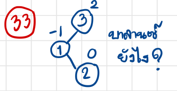 33
2
3
-1
1
0
2
บาลานซ์
ยังไง?